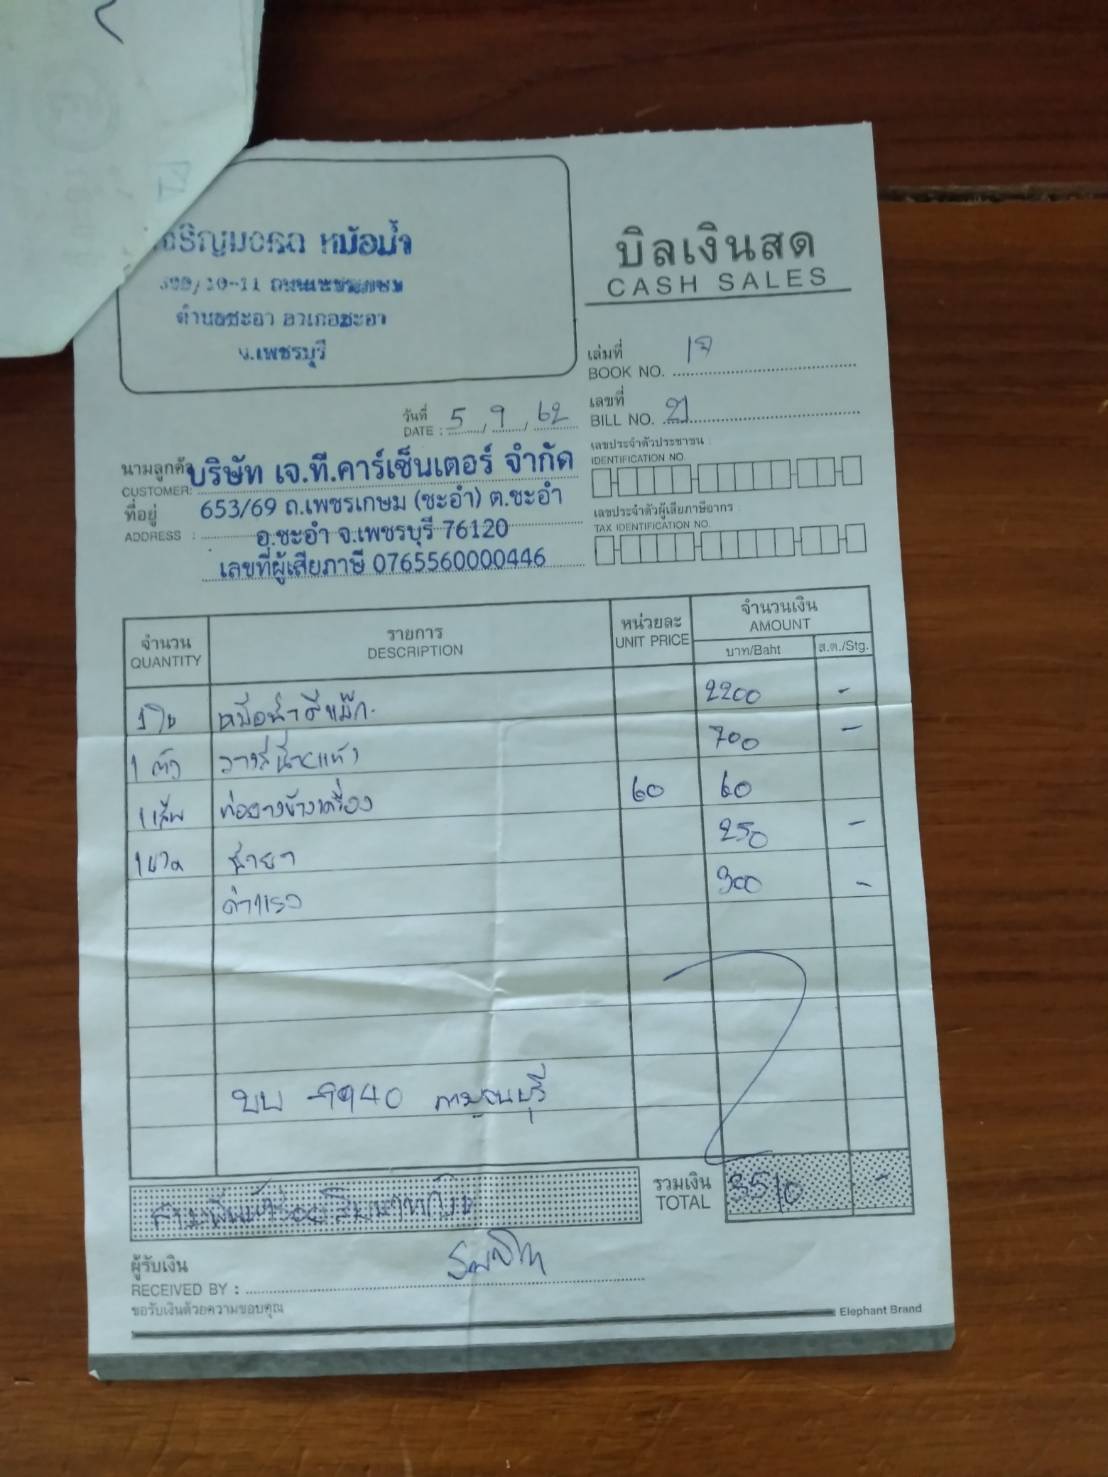 เจริญมอเตอ หม้อน้ำ
ถนนเพชรเกษม
ตำบลชะอำ อำเภอชะอำ
จ.เพชรบุรี
บิลเงินสด
CASH SALES
เล่มที่
BOOK NO.
เลขที่
BILL NO. 21
วันที่
DATE : 5 / 9 / 62
นามลูกค้า บริษัท เจ.ที.คาร์เซ็นเตอร์ จำกัด
CUSTOMER:
ที่อยู่ 653/69 ถ.เพชรเกษม (ชะอำ) ต.ชะอำ
ADDRESS : อ.ชะอำ จ.เพชรบุรี 76120
เลขที่ผู้เสียภาษี 0765560000446
เลขประจำตัวประชาชน
IDENTIFICATION NO.
เลขประจำตัวผู้เสียภาษีอากร
TAX IDENTIFICATION NO.
จำนวน รายการ หน่วยละ จำนวนเงิน
QUANTITY DESCRIPTION UNIT PRICE AMOUNT
บาท/Baht ส.ต./Stg.
1 ใบ หม้อน้ำดีแม๊ก 2200 -
1 ตัว 700 -
1 เส้น ท่อยางข้างเครื่อง 60 60
1 ขวด น้ำยา 250 -
ค่าแรง 300 -
บบ -9940 กาญจนบุรี
รวมเงิน
TOTAL 3510 -
สามพันห้าร้อยสิบบาทถ้วน
ผู้รับเงิน
RECEIVED BY :
ขอรับเงินด้วยความขอบคุณ
Elephant Brand